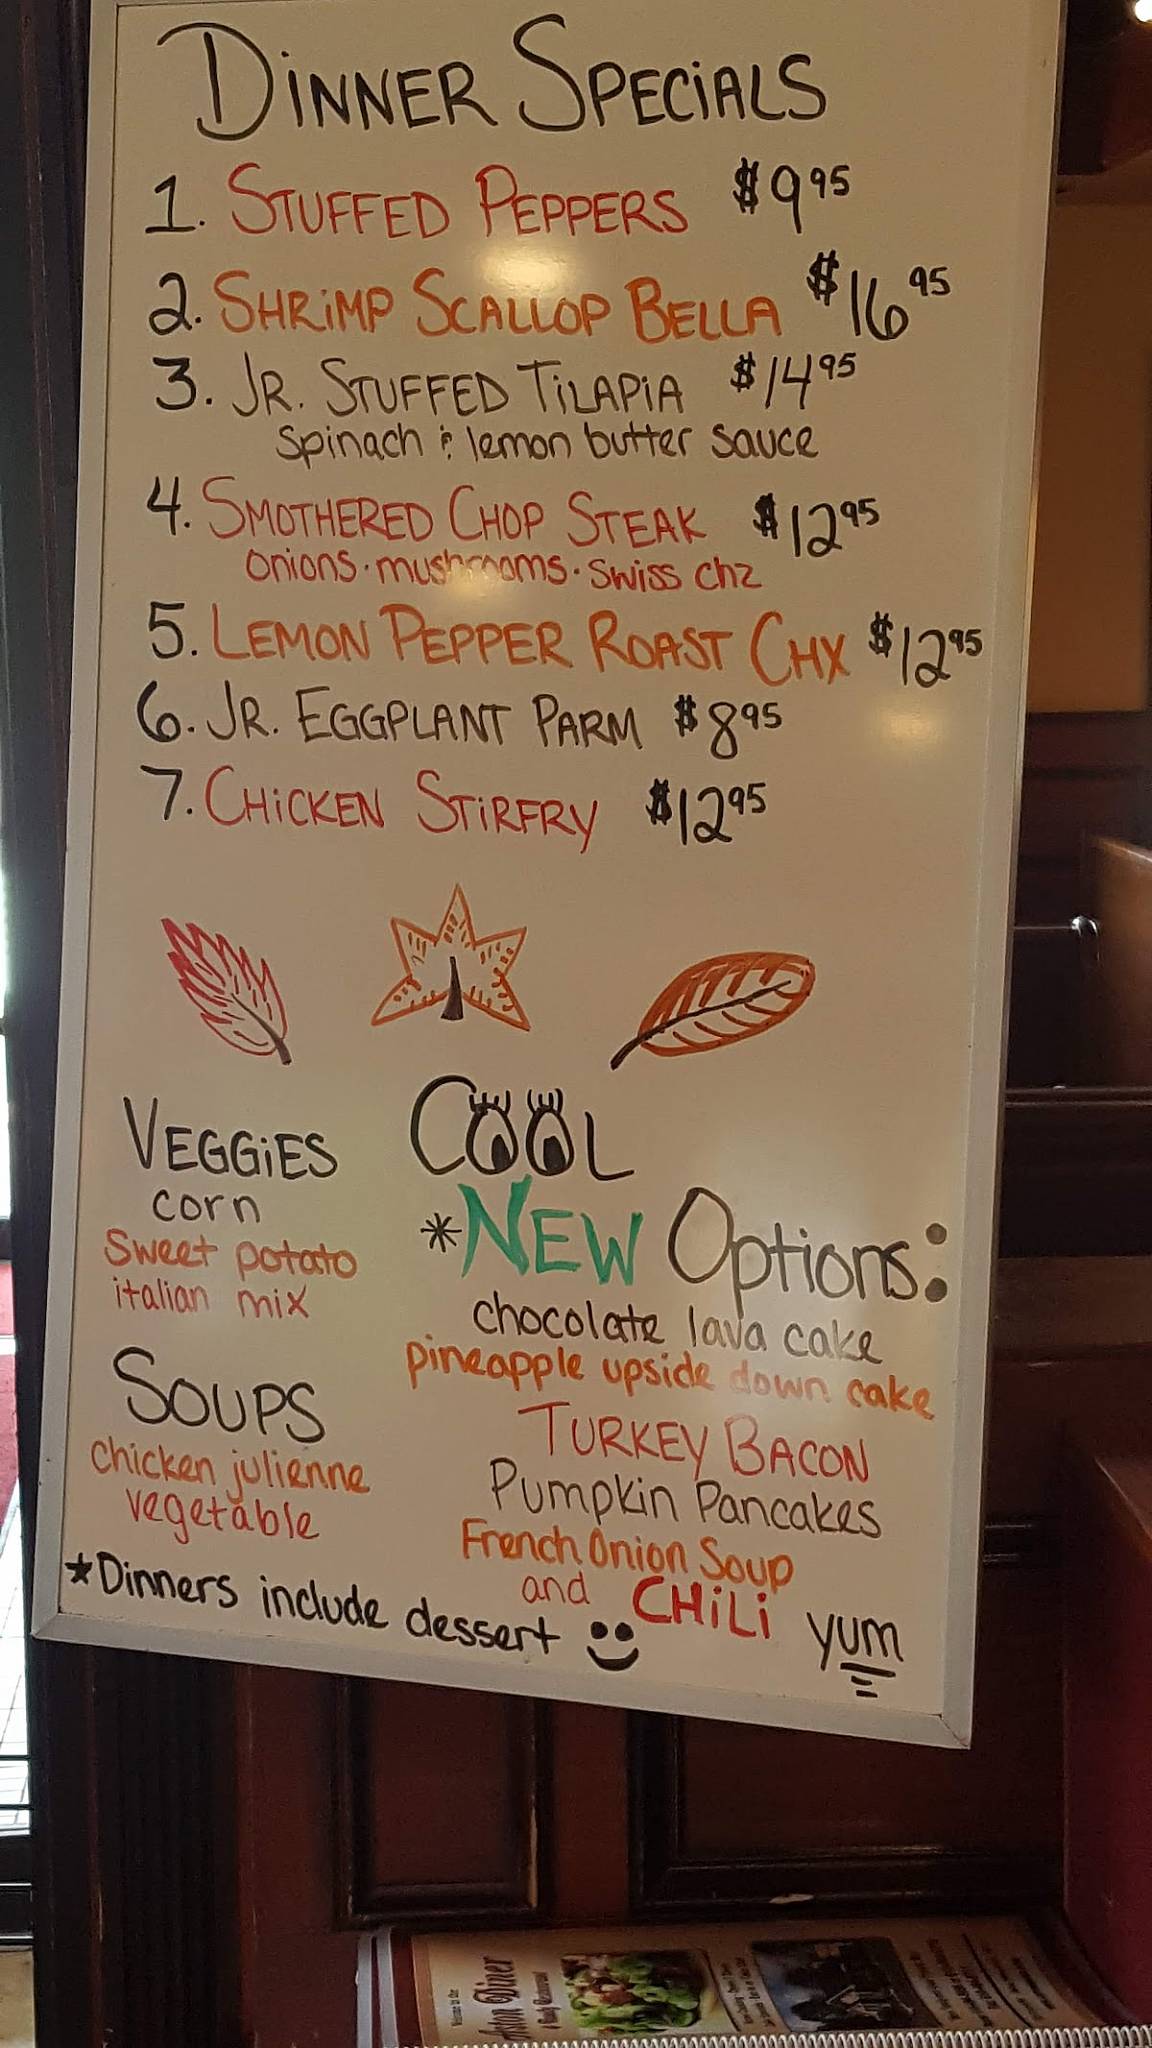 DINNER SPECiALS
1. STUFFED PEPPERS $9 95
2. SHRiMP SCALLOP BELLA $16 95
3. JR. STUFFED TiLAPiA $14 95
Spinach & lemon butter sauce
4. SMOTHERED CHOP STEAK $12 95
onions · mushrooms · swiss chz
5. LEMON PEPPER ROAST CHX $12 95
6. JR. EGGPLANT PARM $8 95
7. CHiCKEN STiRFRY $12 95
VEGGiES
corn
Sweet potato
italian mix
SOUPS
chicken julienne
vegetable
COOL
*NEW Options:
chocolate lava cake
pineapple upside down cake
TURKEY BACON
Pumpkin Pancakes
French Onion Soup
and CHiLi yum
*Dinners include dessert
Aston Diner